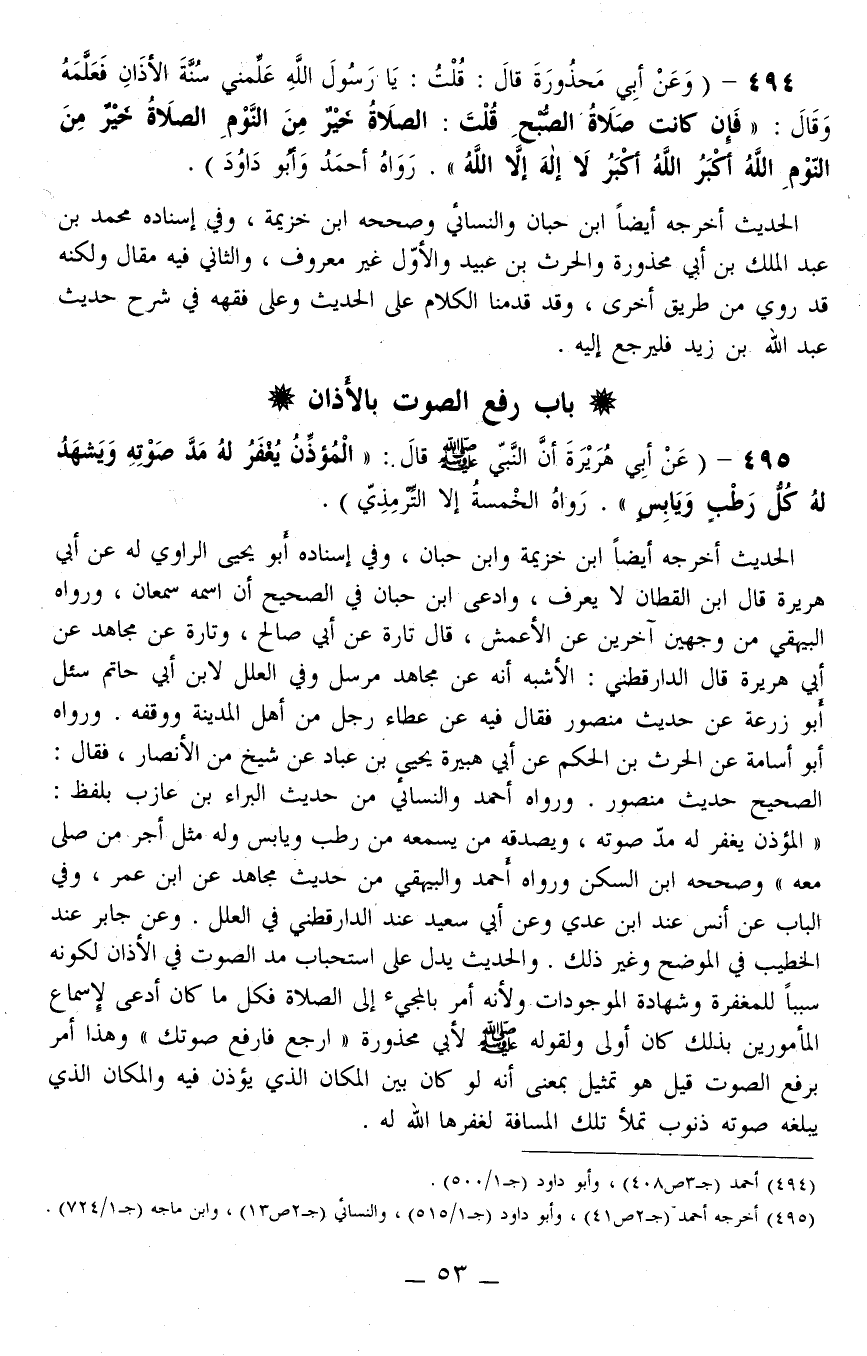 ٤٩٤ – ( وَعَنْ أبِي مَحذُورَةَ قالَ : قُلْتُ : يَا رَسُولَ اللَّهِ عَلِّمني سُنَّةَ الأذَانِ فَعَلَّمَهُ
وَقَالَ : « فَإِن كانت صَلاَةُ الصُّبْحِ قُلْتَ : الصلاَةُ خَيْرٌ مِنَ النَّوْمِ الصلاَةُ خَيْرٌ مِنَ
النَوْمِ اللَّهُ أكْبَرُ اللَّهُ أكْبَرُ لَا إلٰهَ إلَّا اللَّهُ » . رَوَاهُ أحمَدُ وَأَبُو دَاوُدَ ) .
الحديث أخرجه أيضاً ابن حبان والنسائي وصححه ابن خزيمة ، وفي إسناده محمد بن
عبد الملك بن أبي محذورة والحرث بن عبيد والأوّل غير معروف ، والثاني فيه مقال ولكنه
قد روي من طريق أخرى ، وقد قدمنا الكلام على الحديث وعلى فقهه في شرح حديث
عبد الله بن زيد فليرجع إليه .
باب رفع الصوت بالأَذان
٤٩٥ – ( عَنْ أبِي هُرَيْرَةَ أنَّ النَّبِيّ ﷺ قالَ : « الْمُؤذِّنُ يُغْفَرُ لهُ مَدَّ صَوْتِهِ وَيَشهَدُ
لهُ كُلُّ رَطْبٍ وَيَابِسٍ » . رَوَاهُ الخْمسةُ إلا التِّرْمِذِيّ ) .
الحديث أخرجه أيضاً ابن خزيمة وابن حبان ، وفي إسناده أَبو يحيى الراوي له عن أبي
هريرة قال ابن القطان لا يعرف ، وادعى ابن حبان في الصحيح أن اسمه سمعان ، ورواه
البيهقي من وجهين آخرين عن الأعمش ، قال تارة عن أبي صالح ، وتارة عن مجاهد عن
أبي هريرة قال الدارقطني : الأشبه أنه عن مجاهد مرسل وفي العلل لابن أبي حاتم سئل
أَبو زرعة عن حديث منصور فقال فيه عن عطاء رجل من أهل المدينة ووقفه . ورواه
أبو أسامة عن الحرث بن الحكم عن أبي هبيرة يحيى بن عباد عن شيخ من الأنصار ، فقال :
الصحيح حديث منصور . ورواه أحمد والنسائي من حديث البراء بن عازب بلفظ :
« المؤذن يغفر له مدّ صوته ، ويصدقه من يسمعه من رطب ويابس وله مثل أجر من صلى
معه » وصححه ابن السكن ورواه أَحمد والبيهقي من حديث مجاهد عن ابن عمر ، وفي
الباب عن أنس عند ابن عدي وعن أبي سعيد عند الدارقطني في العلل . وعن جابر عند
الخطيب في الموضح وغير ذلك . والحديث يدل على استحباب مد الصوت في الأذان لكونه
سبباً للمغفرة وشهادة الموجودات ولأنه أمر بالمجيء إلى الصلاة فكل ما كان أدعى لإِسماع
المأمورين بذلك كان أولى ولقوله ﷺ لأبي محذورة « ارجع فارفع صوتك » وهذا أمر
برفع الصوت قيل هو تمثيل بمعنى أنه لو كان بين المكان الذي يؤذن فيه والمكان الذي
يبلغه صوته ذنوب تملأ تلك المسافة لغفرها الله له .
(٤٩٤) أحمد (جـ٣ص٤٠٨) ، وأبو داود (جـ٥٠٠/١) .
(٤٩٥) أخرجه أحمد (جـ٢ص٤١) ، وأبو داود (جـ٥١٥/١) ، والنسائي (جـ٢ص١٣) ، وابن ماجه (جـ٧٢٤/١) .
ـ ٥٣ ـ